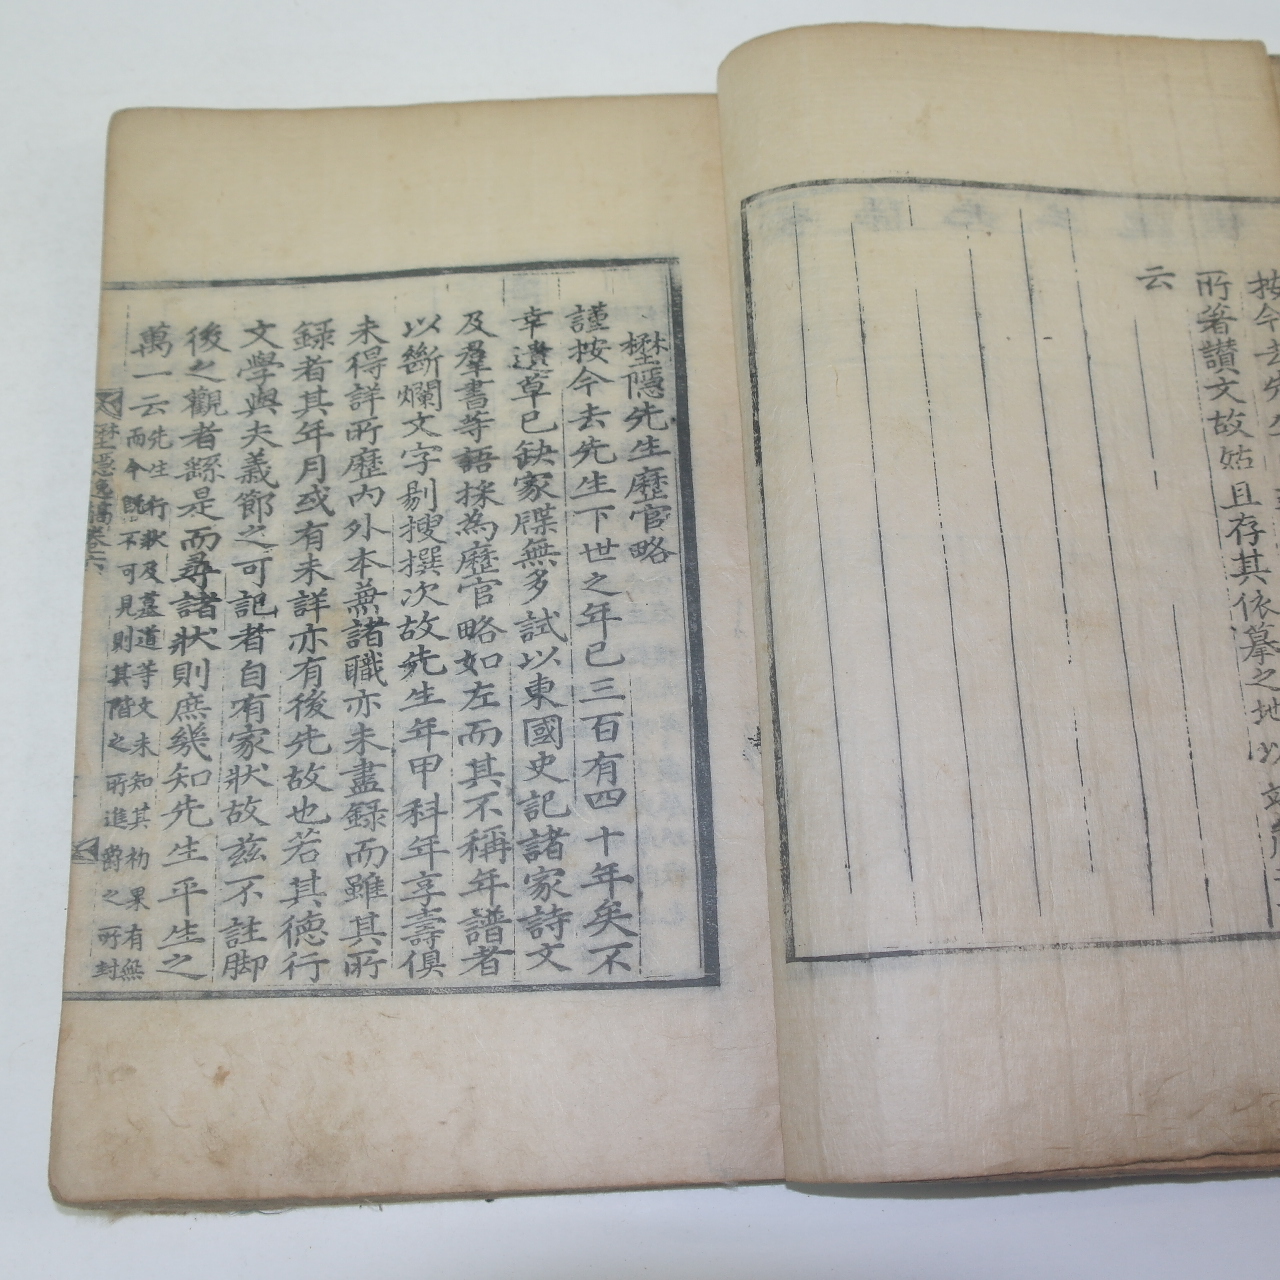 所著讃文故姑且存其依摹之地以
云
樷隱先生歷官略
謹按今去先生下世之年已三百有四十年矣不
幸遺草已缺家牒無多試以東國史記諸家詩文
及羣書等語採為歷官略如左而其不稱年譜者
以斷爛文字剔搜撰次故先生年甲科年享壽俱
未得詳所歷內外本兼諸職亦未盡録而雖其所
録者其年月或有未詳亦有後先故也若其德行
文學與夫義節之可記者自有家狀故玆不註脚
後之觀者繇是而尋諸狀則庶幾知先生平生之
萬一云先生行狀及墓道等文未知其初果有無
而今旣不可見則其階之所進爵之所封